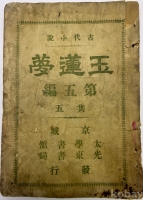 古代小說
玉蓮夢
第五編
售五
京城
太學書館
光東書局
發行
kobay